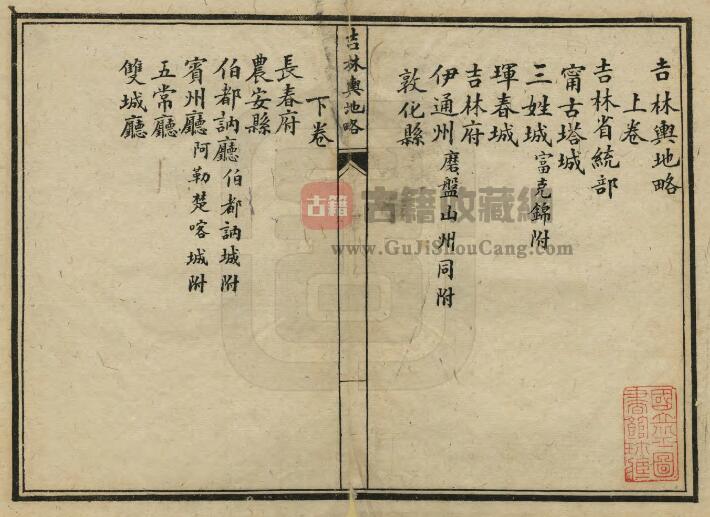 吉林輿地略
上卷
吉林省統部
甯古塔城
三姓城富克錦附
琿春城
吉林府
伊通州磨盤山州同附
敦化縣
吉林輿地略
下卷
長春府
農安縣
伯都訥廳伯都訥城附
賓州廳阿勒楚喀城附
五常廳
雙城廳
古籍
古籍收藏網
www.GuJiShouCang.com